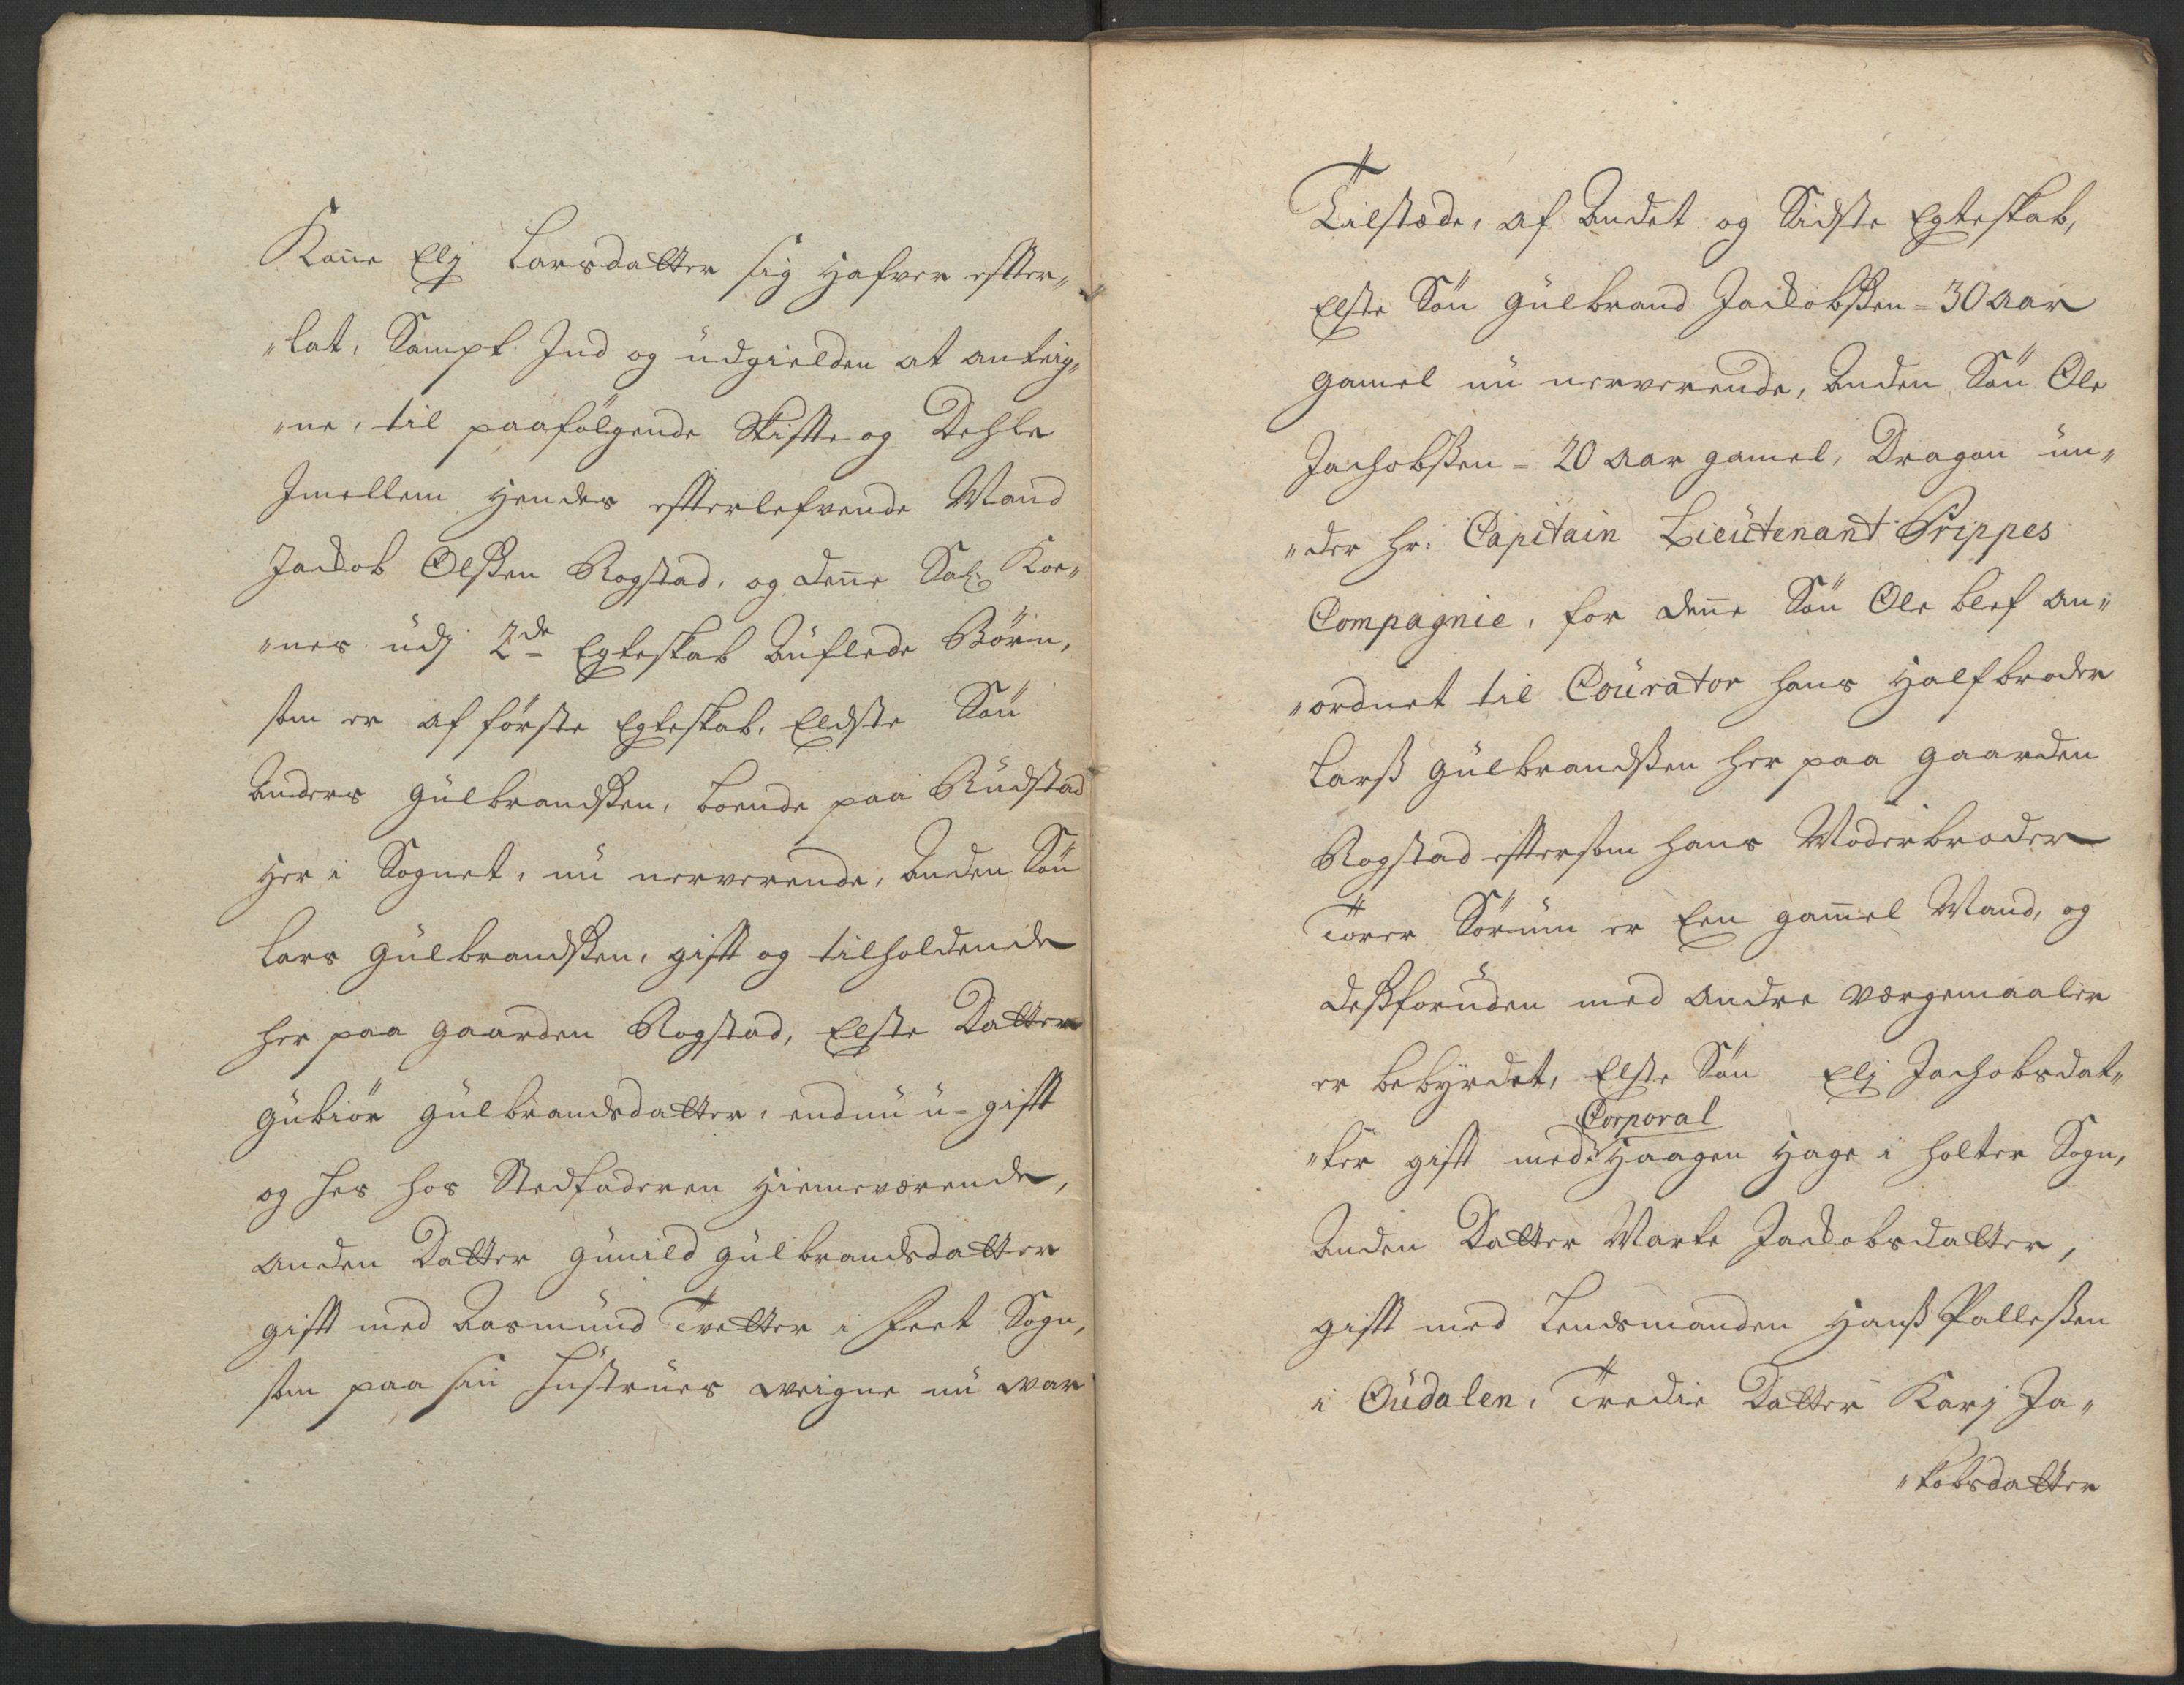 Kone Elj Larsdatter sig Hafver effter„
„lat, Sampt Ind og udgielden at anteig„
„ne, til paafølgende Skiffte og Dehle
Imellem Hendes effterlefvende Mand
Jackob Olßen Rogstad, og denne Sal: Koe„
„nes udj 2de Egteskab Auflede Børn,
som er af første Egteskab, Eldste Søn
Anders Gulbrandßen, boende paa Rudstad
Her i Sognet, nu nerverende, Anden Søn
Lars Gulbrandßen, gifft og tilholdende
her paa gaarden Rogstad, Elste Datter
Gubiør Gulbrandsdatter, endnu u-gifft
og hos Stedfaderen Hiemeværende,
anden Datter Gunild Gulbrandsdatter
gifft med Aasmund Tvetter i Feet Sogn,
som paa sin Hustrues weigne nu war
Tilstede, af Andet og Sidste Egteskab,
Elste Søn Gulbrand Jackobßen = 30 aar
gamel nu nerverende, Anden Søn Ole
Jachobßen = 20 aar gamel, Dragon un„
„der Hr: Capitain Lieutenant Prippes
Compagnie, for denne Søn Ole blef an„
„ordnet til Courator hans Halfbroder
Larß Gulbrandßen her paa gaarden
Rogstad effter som hans Moderbroder
Torer Sørum er Een gammel Mand, og
deßforuden med andre værgemaaler
er bebyrdet, Elste Søn Elj Jachobsdat„
Corporal
„ter gifft med Haagen Hage i Holter Sogn,
Anden Datter Marte Jackobsdatter,
gifft med Lendsmanden Hanß Palleßen
i Oudalen, Tredie Datter Karj Ja„
„kobsdatter